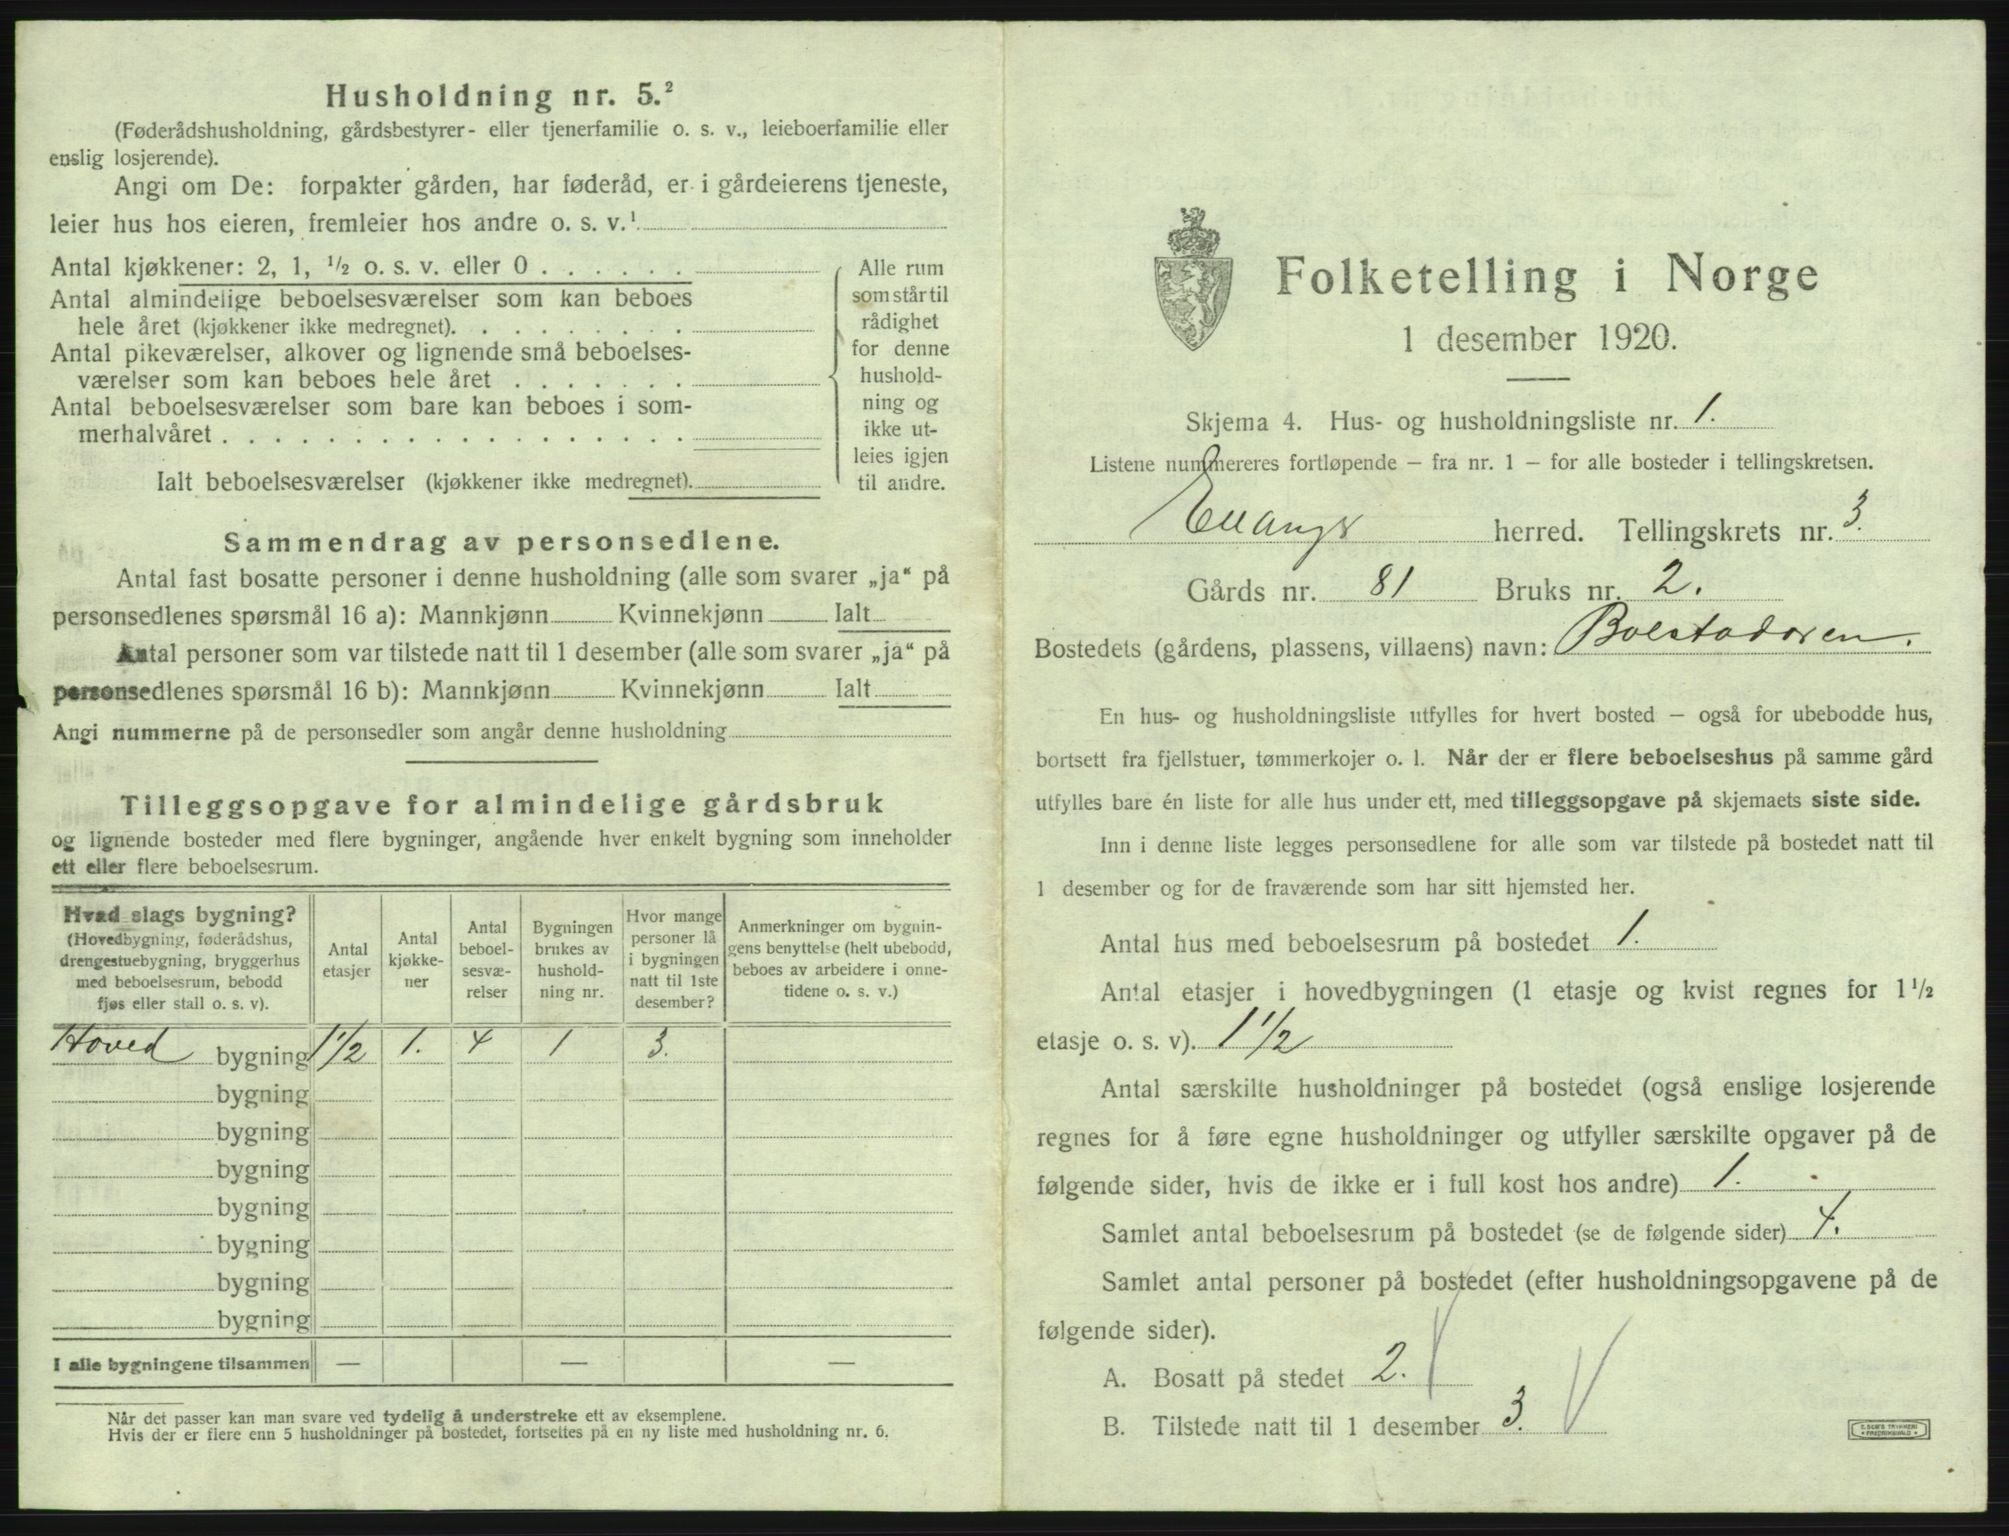 Husholdning nr. 5.²
(Føderådshusholdning, gårdsbestyrer- eller tjenerfamilie o. s. v., leieboerfamilie eller
enslig losjerende).
Angi om De: forpakter gården, har føderåd, er i gårdeierens tjeneste,
leier hus hos eieren, fremleier hos andre o. s. v.¹
Antal kjøkkener: 2, 1, ½ o. s. v. eller 0 . . . . . .
Antal almindelige beboelsesværelser som kan beboes
hele året (kjøkkener ikke medregnet). . . . . . . . .
Antal pikeværelser, alkover og lignende små beboelses-
værelser som kan beboes hele året . . . . . . .
Antal beboelsesværelser som bare kan beboes i som-
merhalvåret . . . . . . . . . . . . . . . . .
Ialt beboelsesværelser (kjøkkener ikke medregnet).
Alle rum
som står til
rådighet
for denne
hushold-
ning og
ikke ut-
leies igjen
til andre.
Sammendrag av personsedlene.
Antal fast bosatte personer i denne husholdning (alle som svarer „ja“ på
personsedlenes spørsmål 16 a): Mannkjønn Kvinnekjønn Ialt
Antal personer som var tilstede natt til 1 desember (alle som svarer „ja“ på
personsedlenes spørsmål 16 b): Mannkjønn Kvinnekjønn Ialt
Angi nummerne på de personsedler som angår denne husholdning
Tilleggsopgave for almindelige gårdsbruk
og lignende bosteder med flere bygninger, angående hver enkelt bygning som inneholder
ett eller flere beboelsesrum.
Hvad slags bygning?
(Hovedbygning, føderådshus,
drengestuebygning, bryggerhus
med beboelsesrum, bebodd
fjøs eller stall o. s. v).
Antal
etasjer
Antal
kjøkke-
ner
Antal
beboel-
sesvæ-
relser
Bygningen
brukes av
hushold-
ning nr.
Hvor mange
personer lå
i bygningen
natt til 1ste
desember?
Anmerkninger om bygnin-
gens benyttelse (helt ubebodd,
beboes av arbeidere i onne-
tidene o. s. v.)
Hoved bygning 1½ 1. 4 1 3.
bygning
bygning
bygning
bygning
bygning
bygning
bygning
I alle bygningene tilsammen — — —
Når det passer kan man svare ved tydelig å understreke ett av eksemplene.
Hvis der er flere enn 5 husholdninger på bostedet, fortsettes på en ny liste med husholdning nr. 6.
Folketelling i Norge
1 desember 1920.
Skjema 4. Hus- og husholdningsliste nr. 1.
Listene nummereres fortløpende – fra nr. 1 – for alle bosteder i tellingskretsen.
Evanger herred. Tellingskrets nr. 3.
Gårds nr. 81 Bruks nr. 2.
Bostedets (gårdens, plassens, villaens) navn: Bolstadøren.
En hus- og husholdningsliste utfylles for hvert bosted – også for ubebodde hus,
bortsett fra fjellstuer, tømmerkojer o. l. Når der er flere beboelseshus på samme gård
utfylles bare én liste for alle hus under ett, med tilleggsopgave på skjemaets siste side.
Inn i denne liste legges personsedlene for alle som var tilstede på bostedet natt til
1 desember og for de fraværende som har sitt hjemsted her.
Antal hus med beboelsesrum på bostedet 1.
Antal etasjer i hovedbygningen (1 etasje og kvist regnes for 1½
etasje o. s. v). 1½
Antal særskilte husholdninger på bostedet (også enslige losjerende
regnes for å føre egne husholdninger og utfyller særskilte opgaver på de
følgende sider, hvis de ikke er i full kost hos andre) 1.
Samlet antal beboelsesrum på bostedet (se de følgende sider) 4.
Samlet antal personer på bostedet (efter husholdningsopgavene på de
følgende sider).
A. Bosatt på stedet 2.
B. Tilstede natt til 1 desember 3.